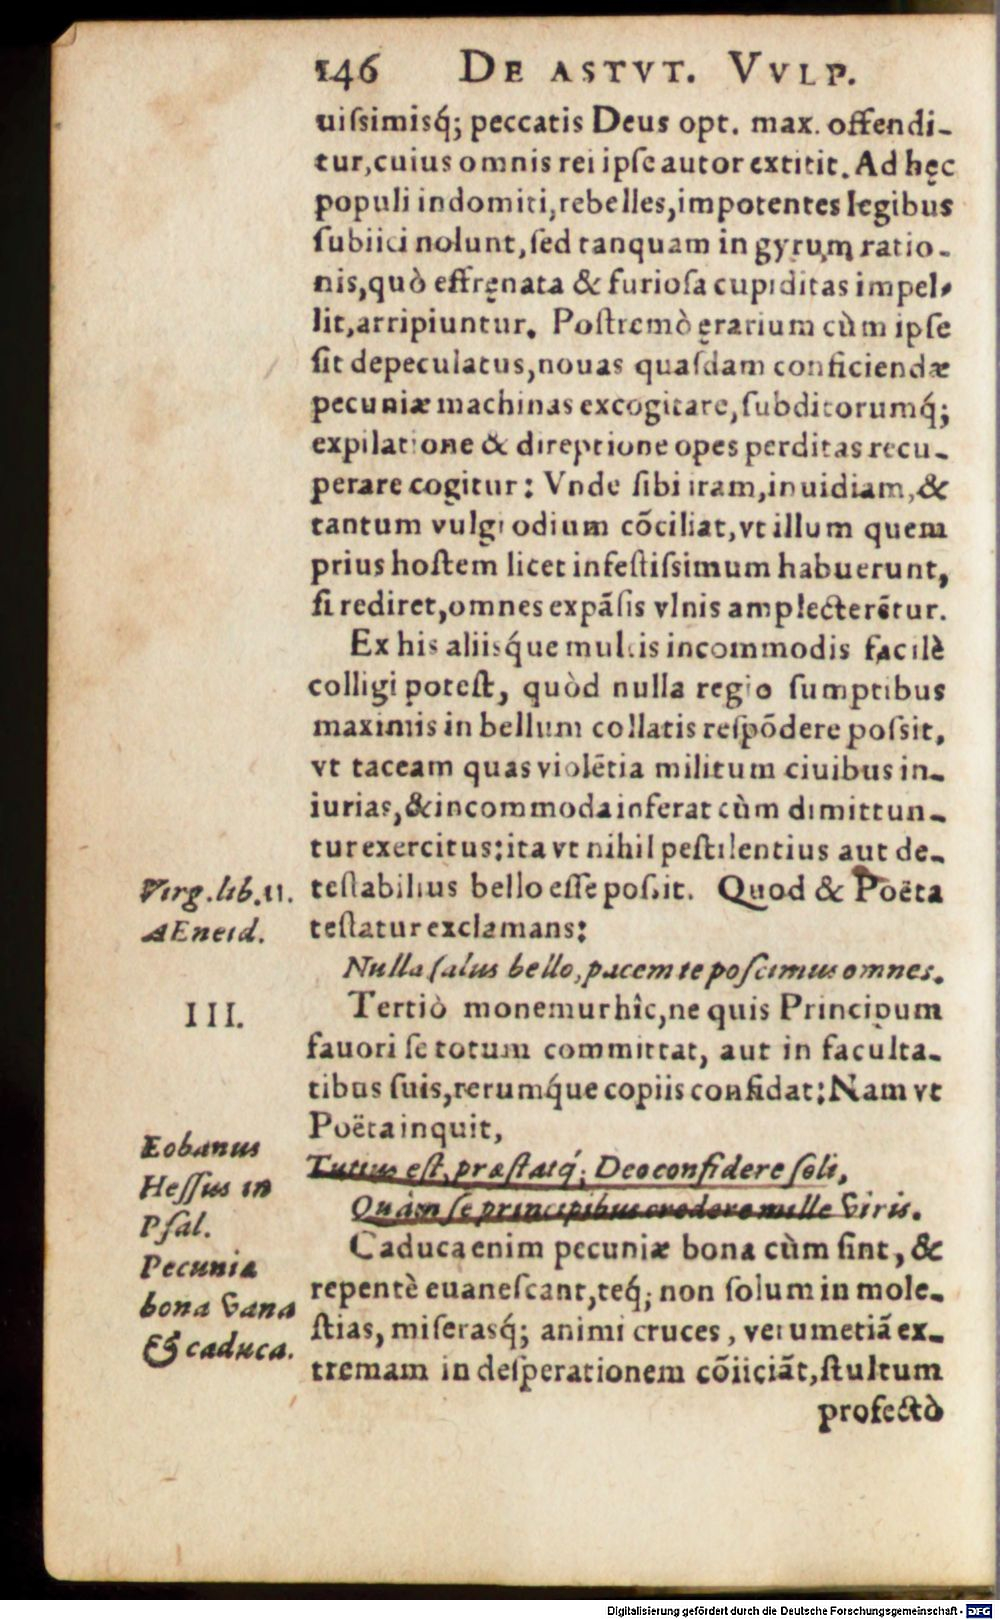 146 DE ASTVT. VVLP.
uiſsimisq́; peccatis Deus opt. max. offendi-
tur, cuius omnis rei ipſe autor extitit. Ad hęc
populi indomiti, rebelles, impotentes legibus
ſubiici nolunt, ſed tanquam in gyrum ratio-
nis, quò effręnata & furioſa cupiditas impel-
lit, arripiuntur. Poſtremò ęrarium cùm ipſe
ſit depeculatus, nouas quaſdam conficiendæ
pecuniæ machinas excogitare, ſubditorumq́;
expilatione & direptione opes perditas recu-
perare cogitur: Vnde ſibi iram, inuidiam, &
tantum vulgi odium cõciliat, vt illum quem
prius hoſtem licet infeſtiſsimum habuerunt,
ſi rediret, omnes expãſis vlnis amplecterẽtur.
Ex his aliisq́ue multis incommodis facilè
colligi poteſt, quòd nulla regio ſumptibus
maximis in bellum collatis reſpõdere poſsit,
vt taceam quas violẽtia militum ciuibus in-
iurias, & incommoda inferat cùm dimittun-
tur exercitus: ita vt nihil peſtilentius aut de-
Virg. lib. 11. teſtabilius bello eſſe poſsit. Quod & Poëta
AEneid. teſtatur exclamans:
Nulla ſalus bello, pacem te poſcimus omnes.
III. Tertiò monemur hîc, ne quis Principum
fauori ſe totum committat, aut in faculta-
tibus ſuis, rerumq́ue copiis confidat: Nam vt
Poëta inquit,
Eobanus
Heſſus in
Pſal.
Tutius eſt, præſtatq́; Deo confidere ſoli,
Quàm ſe principibus credere mille viris.
Pecunia
bona vana
& caduca.
Caduca enim pecuniæ bona cùm ſint, &
repentè euaneſcant, teq́; non ſolum in mole-
ſtias, miſerasq́; animi cruces, verum etiã ex-
tremam in deſperationem cõiiciãt, ſtultum
profectò
Digitalisierung gefördert durch die Deutsche Forschungsgemeinschaft - DFG